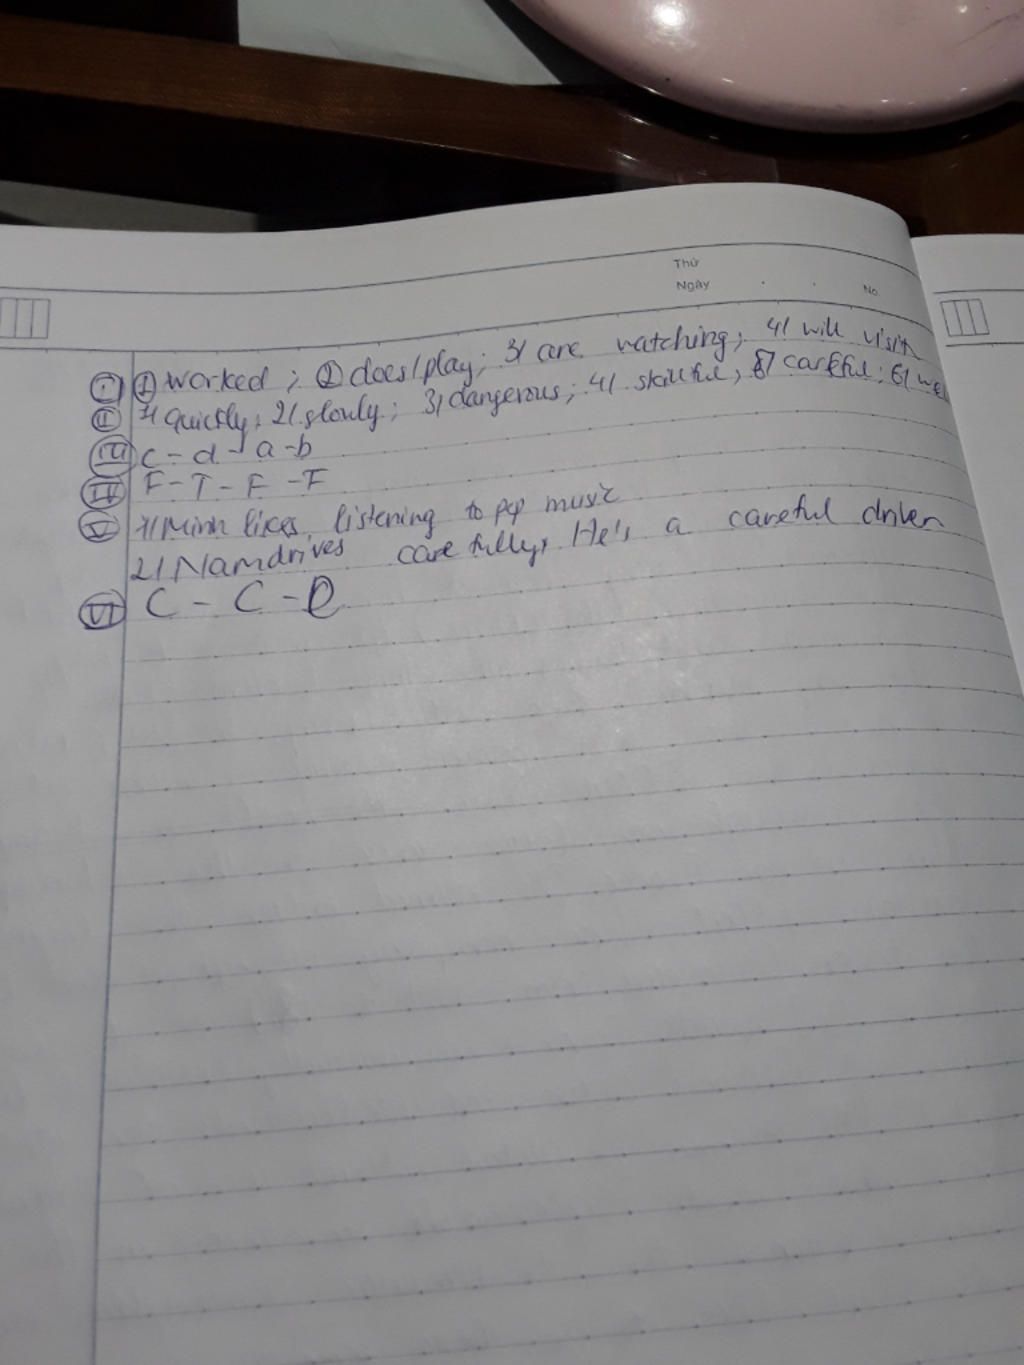 Thứ
Ngày . . No.
I 1 worked ; 2 does/play; 3/ are watching; 4/ will visit
II 1/ quickly; 2/ slowly; 3/ dangerous; 4/ skillful; 5/ careful; 6/
III c - d - a - b
IV F - T - F - F
V 1/ Minh likes listening to pop music
2/ Nam drives carefully, He's a careful driver
VI C - C - D